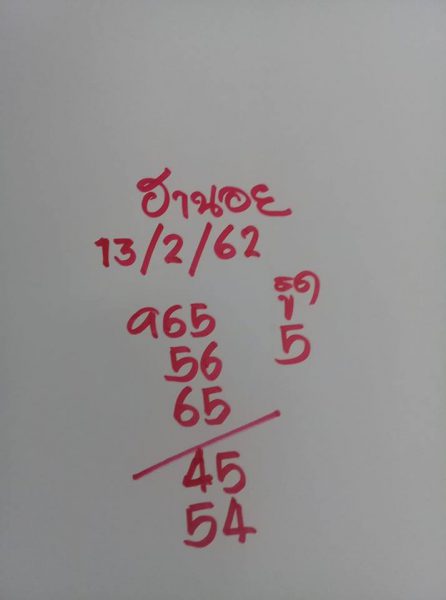 ฮานอย
13/2/62
965
56
65
รูด
5
45
54